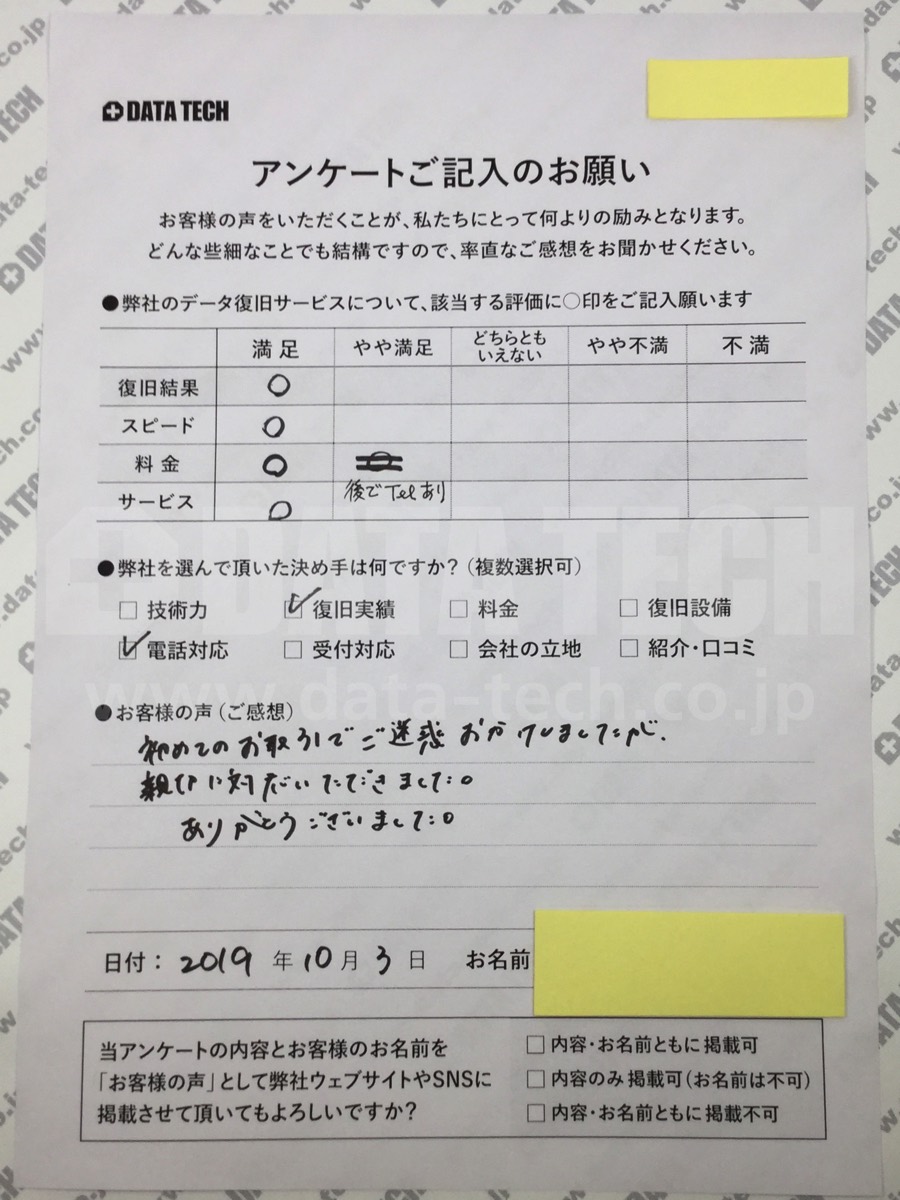 DATA TECH
アンケートご記入のお願い
お客様の声をいただくことが、私たちにとって何よりの励みとなります。
どんな些細なことでも結構ですので、率直なご感想をお聞かせください。
●弊社のデータ復旧サービスについて、該当する評価に○印をご記入願います
満足 やや満足 どちらともいえない やや不満 不満
復旧結果 ○
スピード ○
料金 ○ ○
サービス ○ 後でTelあり
●弊社を選んで頂いた決め手は何ですか？（複数選択可）
□ 技術力 ☑ 復旧実績 □ 料金 □ 復旧設備
☑ 電話対応 □ 受付対応 □ 会社の立地 □ 紹介・口コミ
DATA TECH
www.data-tech.co.jp
●お客様の声（ご感想）
初めてのお取引でご迷惑おかけしましたが、
親切に対応いただきました。
ありがとうございました。
日付： 2019 年 10 月 3 日 お名前
当アンケートの内容とお客様のお名前を
「お客様の声」として弊社ウェブサイトやSNSに
掲載させて頂いてもよろしいですか？
□ 内容・お名前ともに掲載可
□ 内容のみ掲載可（お名前は不可）
□ 内容・お名前ともに掲載不可